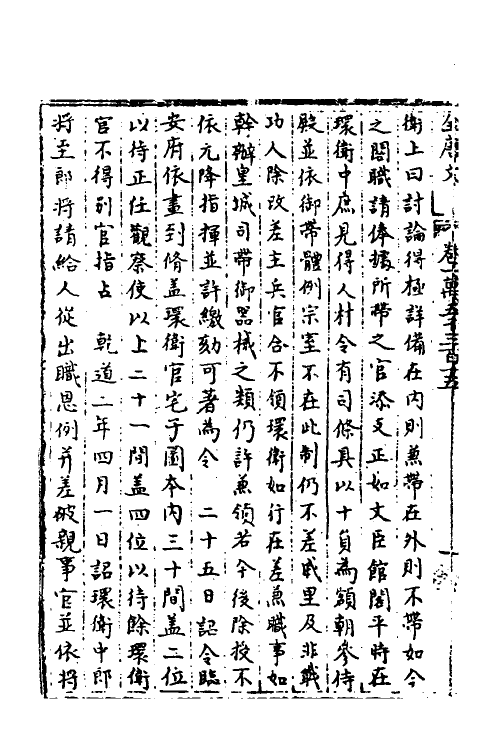 全唐文 卷一萬五千三百十五
衛上曰討論得極詳備在内則兼帶在外則不帶如今
之閤職請俸據所帶之官添支正如文臣館閣平時在
環衛中庶見得人材令有司條具以十員為額朝參侍
殿並依御帶體例宗室不在此制仍不差戚里及非戰
功人除改差主兵官合不領環衛如行在差兼職事如
幹辦皇城司帶御器械之類仍許兼領若今後除授不
依元降指揮並許繳刻可著為令 二十五日詔令臨
安府依畫到脩蓋環衛官宅子圖本内三十間蓋二位
以待正任觀察使以上二十一間蓋四位以待餘環衛
官不得别官指占 乾道二年四月一日詔環衛中郎
將至郎將請給人從出職恩例并差破親事官並依將